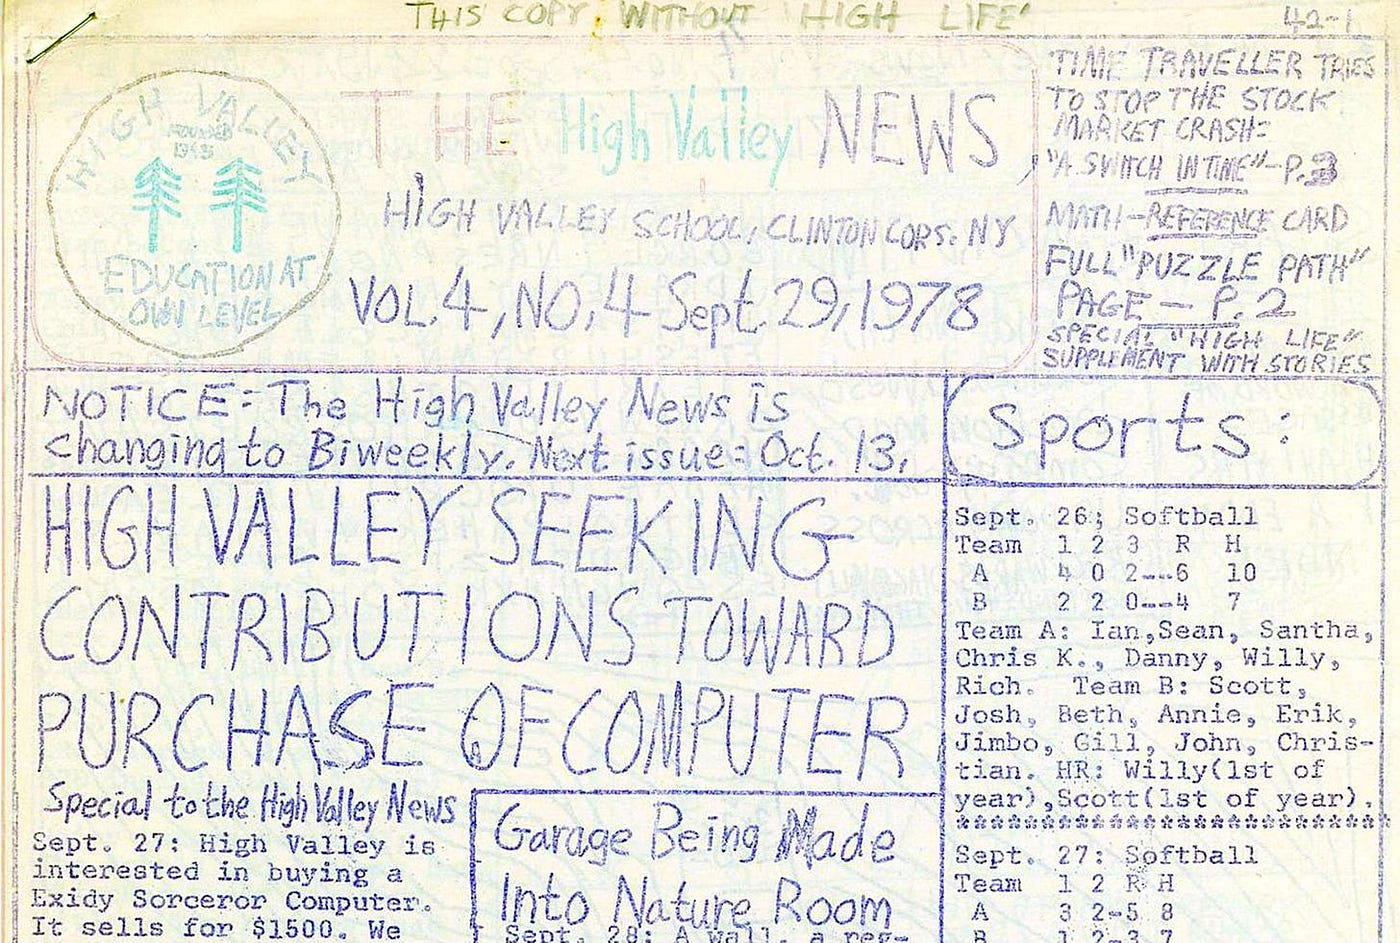 THIS COPY WITHOUT 'HIGH LIFE'
42-1
HIGH VALLEY
FOUNDED
1945
EDUCATION AT
OWN LEVEL
THE High Valley NEWS,
HIGH VALLEY SCHOOL, CLINTON CORS. NY
VOL. 4, NO. 4 Sept. 29, 1978
TIME TRAVELLER TRIES
TO STOP THE STOCK
MARKET CRASH=
"A SWITCH IN TIME"-P.3
MATH-REFERENCE CARD
FULL "PUZZLE PATH"
PAGE - P. 2
SPECIAL "HIGH LIFE"
SUPPLEMENT WITH STORIES
NOTICE= The High Valley News is
changing to Biweekly. Next issue= Oct. 13.
HIGH VALLEY SEEKING
CONTRIBUTIONS TOWARD
PURCHASE OF COMPUTER
Special to the High Valley News
Sept. 27: High Valley is
interested in buying a
Exidy Sorceror Computer.
It sells for $1500. We
Garage Being Made
Into Nature Room
Sept. 28: A wall, a reg-
Sports:
Sept. 26; Softball
Team 1 2 3 R H
A 4 0 2--6 10
B 2 2 0--4 7
Team A: Ian,Sean, Santha,
Chris K., Danny, Willy,
Rich. Team B: Scott,
Josh, Beth, Annie, Erik,
Jimbo, Gill, John, Chris-
tian. HR: Willy(1st of
year),Scott(1st of year).
*************************
Sept. 27: Softball
Team 1 2 R H
A 3 2-5 8
B 1 2-3 7